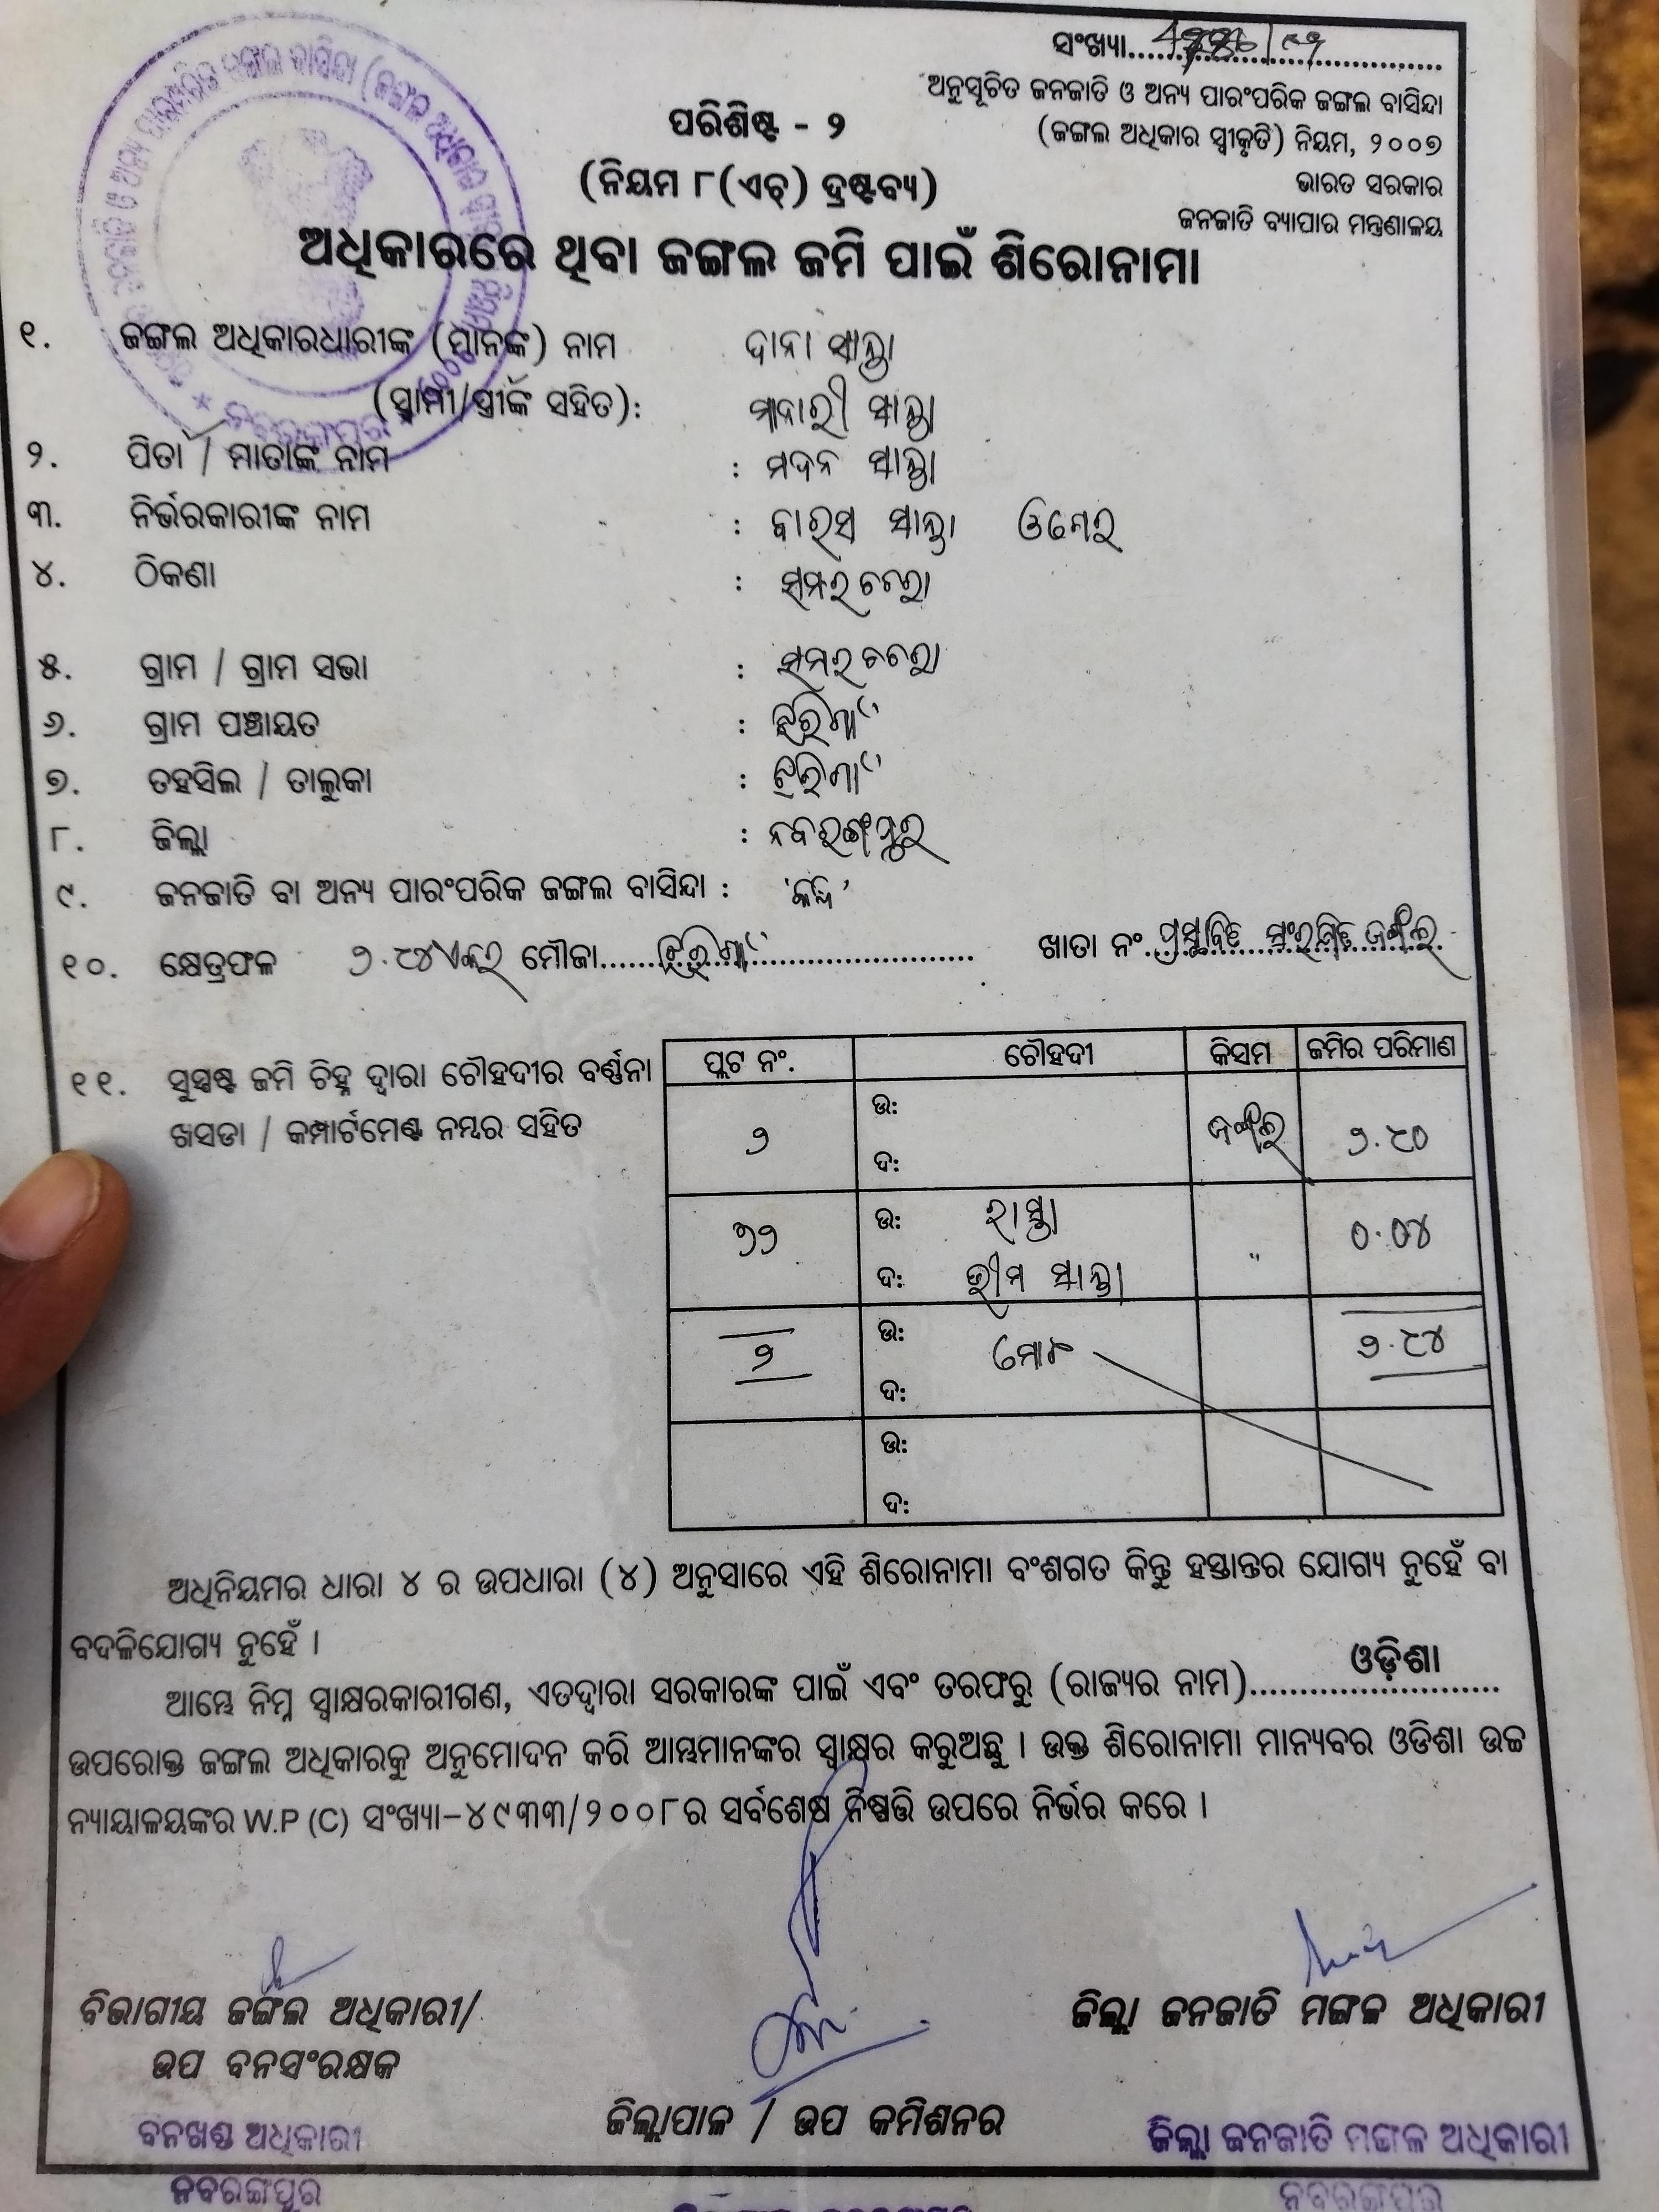 ସଂଖ୍ୟା
ଅନୁସୂଚିତ ଜନଜାତି ଓ ଅନ୍ୟ ପାରଂପରିକ ଜଙ୍ଗଲ ବାସିନ୍ଦା
(ଜଙ୍ଗଲ ଅଧିକାର ସ୍ୱୀକୃତି) ନିୟମ, ୨୦୦୭
ଭାରତ ସରକାର
ଜନଜାତି ବ୍ୟାପାର ମନ୍ତ୍ରଣାଳୟ
ପରିଶିଷ୍ଟ - ୨
(ନିୟମ ୮(ଏଚ୍) ଦ୍ରଷ୍ଟବ୍ୟ)
ଅଧିକାରରେ ଥିବା ଜଙ୍ଗଲ ଜମି ପାଇଁ ଶିରୋନାମା
୧. ଜଙ୍ଗଲ ଅଧିକାରଧାରୀଙ୍କ (ମାନଙ୍କ) ନାମ ଦାନା ସାନ୍ତା
(ସ୍ୱାମୀ/ସ୍ତ୍ରୀଙ୍କ ସହିତ): ସାନ୍ତା
୨. ପିତା / ମାତାଙ୍କ ନାମ : ମଦନ ସାନ୍ତା
୩. ନିର୍ଭରକାରୀଙ୍କ ନାମ : ସାନ୍ତା
୪. ଠିକଣା :
୫. ଗ୍ରାମ / ଗ୍ରାମ ସଭା :
୬. ଗ୍ରାମ ପଞ୍ଚାୟତ : ଝରିଗାଁ
୭. ତହସିଲ / ତାଲୁକା : ଝରିଗାଁ
୮. ଜିଲ୍ଲା : ନବରଙ୍ଗପୁର
୯. ଜନଜାତି ବା ଅନ୍ୟ ପାରଂପରିକ ଜଙ୍ଗଲ ବାସିନ୍ଦା :
୧୦. କ୍ଷେତ୍ରଫଳ ୨.୯୪ ଏକର ମୌଜା ଝରିଗାଁ ଖାତା ନଂ ପ୍ରସ୍ତାବିତ ସଂରକ୍ଷିତ ଜଙ୍ଗଲ
୧୧. ସୁସ୍ପଷ୍ଟ ଜମି ଚିହ୍ନ ଦ୍ୱାରା ଚୌହଦୀର ବର୍ଣ୍ଣନା
ଖସଡା / କମ୍ପାର୍ଟମେଣ୍ଟ ନମ୍ଭର ସହିତ
ପ୍ଲଟ ନଂ. ଚୌହଦୀ କିସମ ଜମିର ପରିମାଣ
୨ ଉ: ଜଙ୍ଗଲ ୨.୯୦
ଦ:
୬୨ ଉ: ରାସ୍ତା " ୦.୦୪
ଦ: ଭୀମ ସାନ୍ତା
୨ ଉ: ମୋଟ ୨.୯୪
ଦ:
ଉ:
ଦ:
ଅଧିନିୟମର ଧାରା ୪ ର ଉପଧାରା (୪) ଅନୁସାରେ ଏହି ଶିରୋନାମା ବଂଶଗତ କିନ୍ତୁ ହସ୍ତାନ୍ତର ଯୋଗ୍ୟ ନୁହେଁ ବା
ବଦଳିଯୋଗ୍ୟ ନୁହେଁ ।
ଆମ୍ଭେ ନିମ୍ନ ସ୍ୱାକ୍ଷରକାରୀଗଣ, ଏତଦ୍ୱାରା ସରକାରଙ୍କ ପାଇଁ ଏବଂ ତରଫରୁ (ରାଜ୍ୟର ନାମ) ଓଡ଼ିଶା
ଉପରୋକ୍ତ ଜଙ୍ଗଲ ଅଧିକାରକୁ ଅନୁମୋଦନ କରି ଆମ୍ଭମାନଙ୍କର ସ୍ୱାକ୍ଷର କରୁଅଛୁ । ଉକ୍ତ ଶିରୋନାମା ମାନ୍ୟବର ଓଡିଶା ଉଚ୍ଚ
ନ୍ୟାୟାଳୟଙ୍କର W.P (C) ସଂଖ୍ୟା-୪୯୩୩/୨୦୦୮ର ସର୍ବଶେଷ ନିଷ୍ପତ୍ତି ଉପରେ ନିର୍ଭର କରେ ।
ବିଭାଗୀୟ ଜଙ୍ଗଲ ଅଧିକାରୀ/
ଉପ ବନସଂରକ୍ଷକ
ଜିଲ୍ଲାପାଳ / ଉପ କମିଶନର
ଜିଲ୍ଲା ଜନଜାତି ମଙ୍ଗଳ ଅଧିକାରୀ
ବନଖଣ୍ଡ ଅଧିକାରୀ
ନବରଙ୍ଗପୁର
ଜିଲ୍ଲା ଜନଜାତି ମଙ୍ଗଳ ଅଧିକାରୀ
ନବରଙ୍ଗପୁର